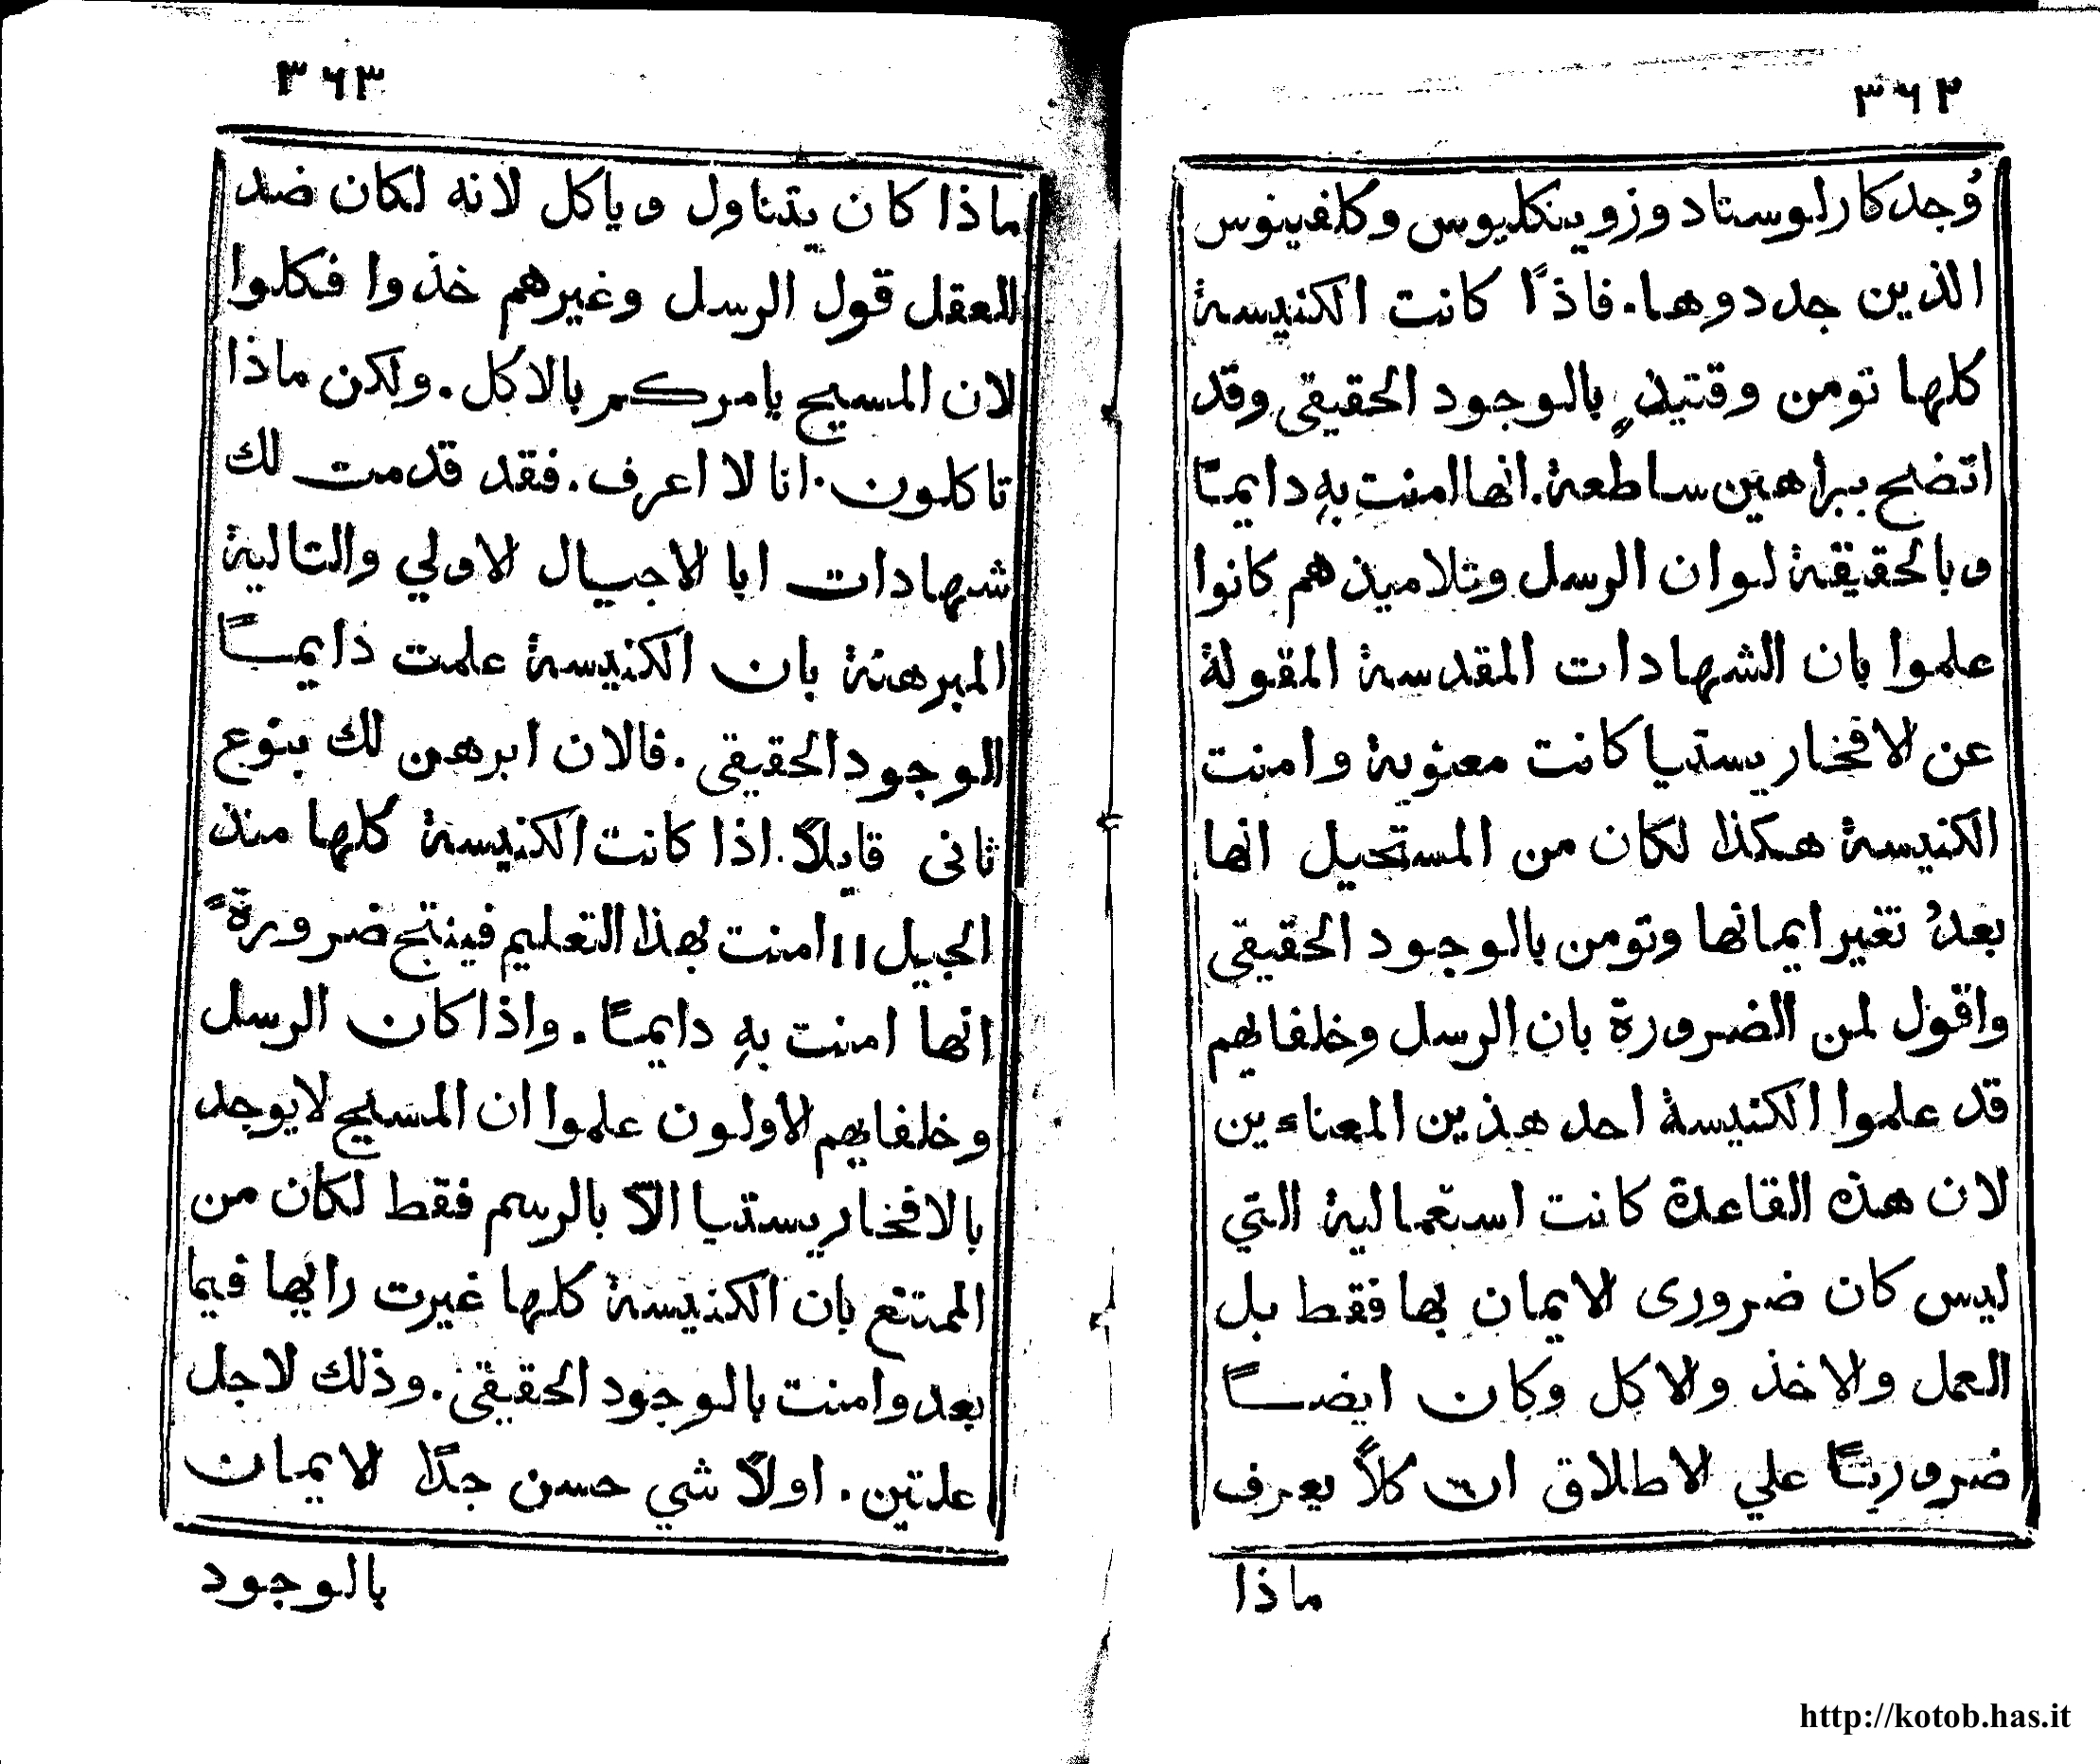 ٣٦٢
وُجد كارلوستاد وزوينكليوس وكلفينوس
الذين جددوها. فاذًا كانت الكنيسة
كلها تومن وقتيذٍ بالوجود الحقيقي وقد
اتضح ببراهين ساطعة. انها امنت بهِ دايمًا
وبالحقيقة لو ان الرسل وتلاميذهم كانوا
علموا بان الشهادات المقدسة المقولة
عن الافخاريستيا كانت معنوية وامنت
الكنيسة هكذا لكان من المستحيل انها
بعدُ تغير ايمانها وتومن بالوجود الحقيقي
واقول لمن الضرورة بان الرسل وخلفايهم
قد علموا الكنيسة احد هذين المعناءين
لان هذه القاعدة كانت استعمالية التي
ليس كان ضرورى الايمان بها فقط بل
العمل والاخذ والاكل وكان ايضًا
ضروريًا علي الاطلاق ان كلاً يعرف
ماذا
٣٦٣
ماذا كان يتناول وياكل لانه لكان ضد
العقل قول الرسل وغيرهم خذوا فكلوا
لان المسيح يامركم بالاكل. ولكن ماذا
تاكلون. انا لا اعرف. فقد قدمت لك
شهادات ابا الاجيال الاولي والتالية
المبرهنة بان الكنيسة علمت دايمًا
الوجود الحقيقي. فالان ابرهن لك بنوع
ثانى قايلاً. اذا كانت الكنيسة كلها منذ
الجيل ١١ امنت بهذا التعليم فينتج ضرورةً
انها امنت بهِ دايمًا. واذا كان الرسل
وخلفايهم الاولون علموا ان المسيح لا يوجد
بالافخاريستيا الّا بالرسم فقط لكان من
الممتنع بان الكنيسة كلها غيرت رايها فيما
بعد وامنت بالوجود الحقيقي. وذلك لاجل
علتين. اولاً شي حسن جدًا الايمان
بالوجود
http://kotob.has.it